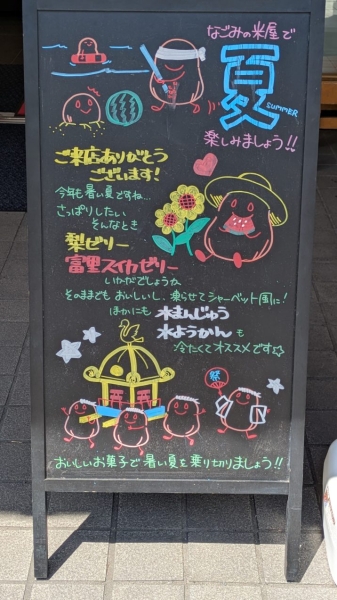 なごみの米屋で
夏
SUMMER
楽しみましょう!!
ご来店ありがとう
ございます!
今年も暑い夏ですね…
さっぱりしたい
そんなとき
梨ゼリー
富里スイカゼリー
いかがでしょうか
そのままでもおいしいし、凍らせてシャーベット風に!
ほかにも 水まんじゅう
水ようかん も
冷たくてオススメです☆
祭
おいしいお菓子で暑い夏を乗り切りましょう!!